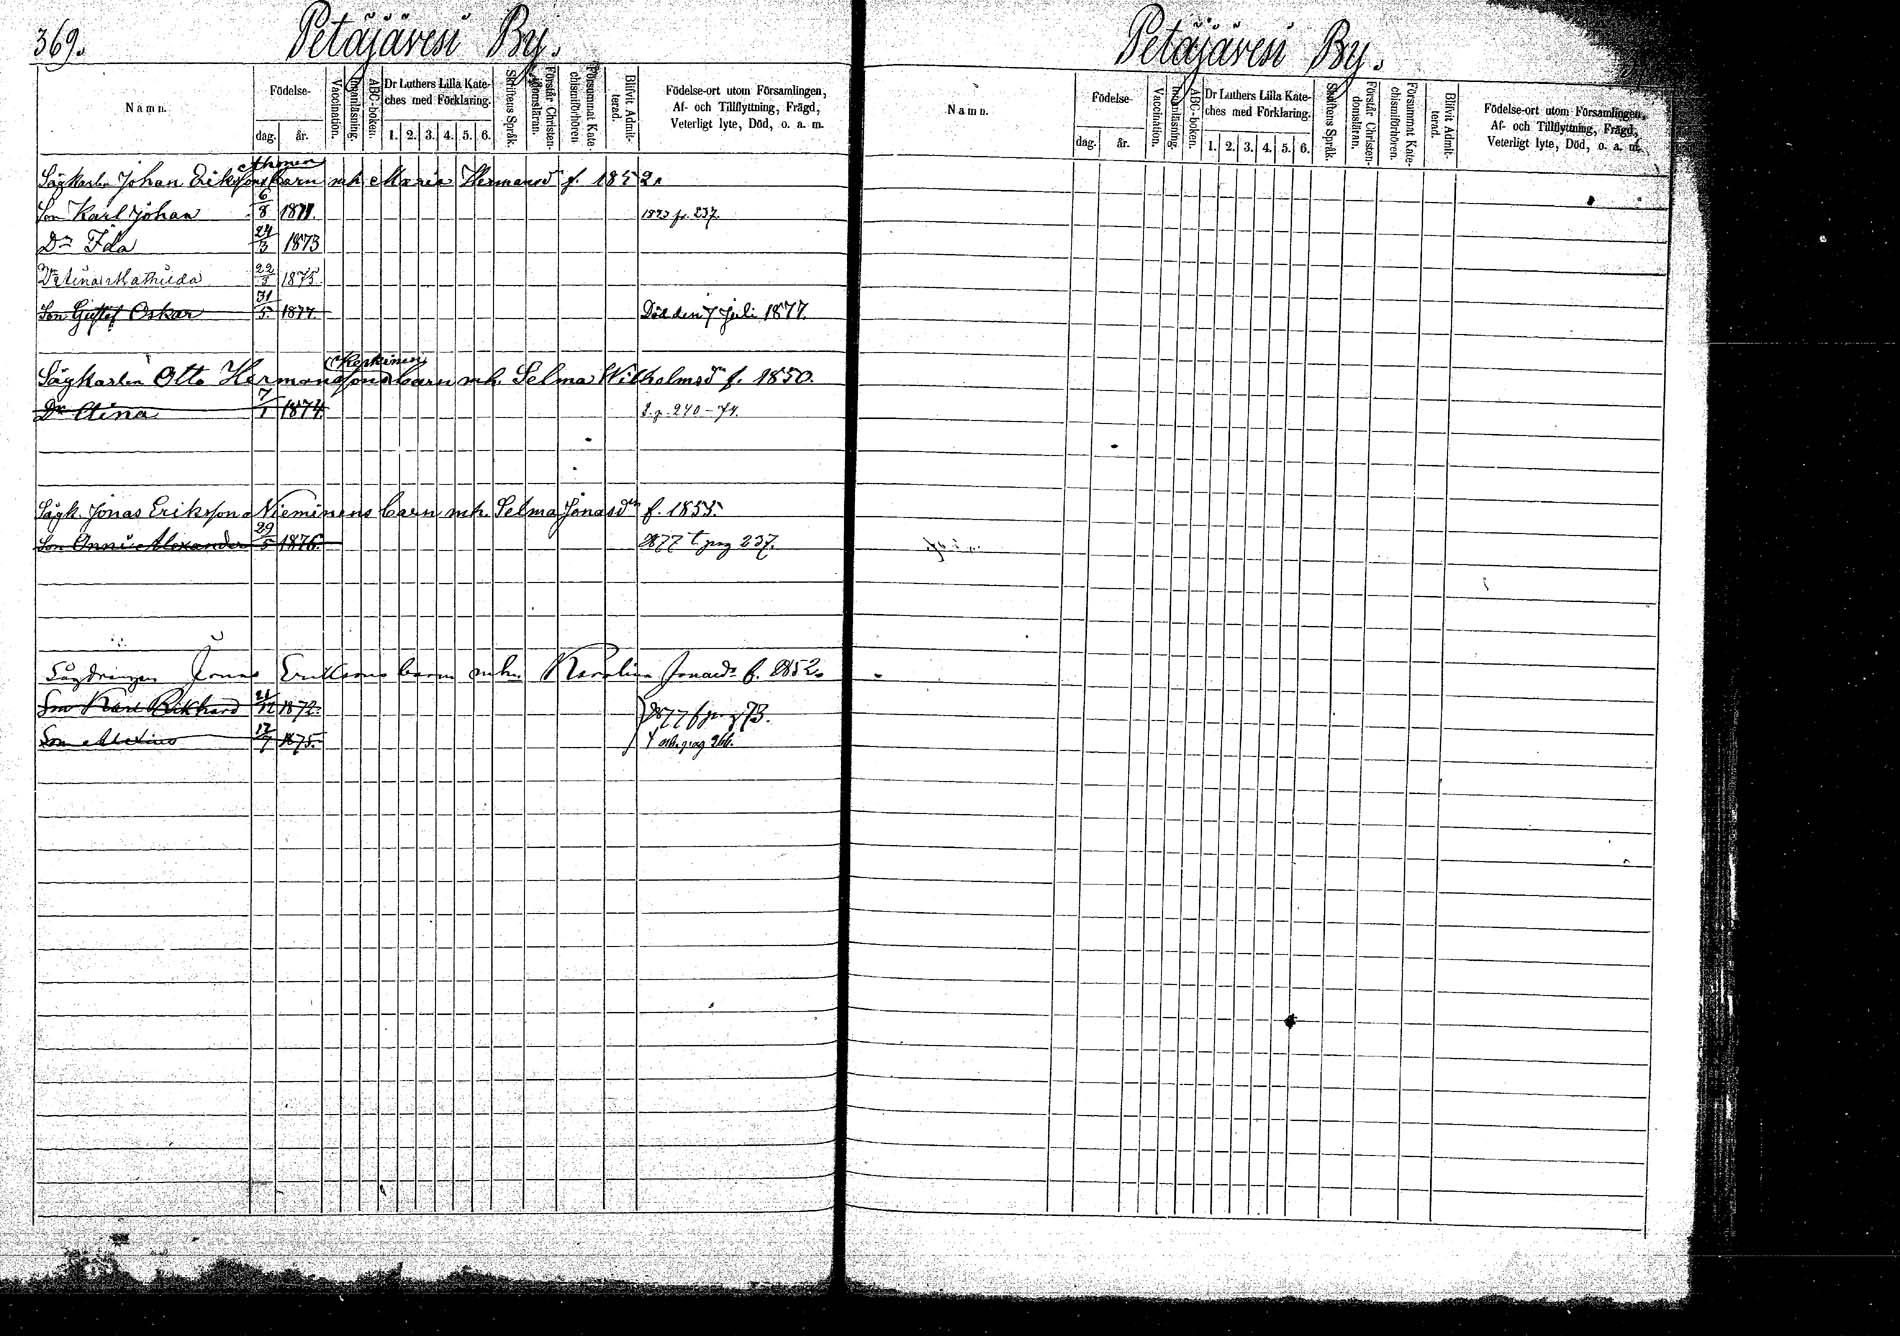 369.
Petäjävesi By.
Namn.
Födelse-
dag.
år.
Vaccination.
Innanläsning.
ABC-boken.
Dr Luthers Lilla Kate-
ches med Förklaring.
1. 2. 3. 4. 5. 6.
Skriftens Språk.
Förstår Christen-
domsläran.
Försummat Kate-
chismiförhören
Blifvit Admit-
terad.
Födelse-ort utom Församlingen,
Af- och Tillflyttning, Frägd,
Veterligt lyte, Död, o. a. m.
Ahonen
Sågkarlen Johan Erikssons barn mh Maria Hermansdr f. 1852.
Son Karl Johan 6/8 1871. 237.
Dr Ida 24/3 1873
Dr Mathilda 22/3 1875
Son Gustaf Oskar 31/5 1877. Död den 7 Juli 1877.
Sågkarlen Otto Hermanssons barn mh. Selma Wilhelmsdr f. 1850.
Dr 7/1 1874 240-74.
Sågk. Jonas Erikssons Nieminens barn mh. Selma Jonasdr f. 1855.
Son Onni Alexander 29/5 1876. 1877 t pag 237.
Sågdrängen Jonas Erikssons barn mh. Karolina Jonasdr f. 1852.
Son Karl Rikhard 21/12 1872. 1877 fr p 73.
Son 12/7 1875. pag
Petäjävesi By.
Namn.
Födelse-
dag.
år.
Vaccination.
Innanläsning.
ABC-boken.
Dr Luthers Lilla Kate-
ches med Förklaring.
1. 2. 3. 4. 5. 6.
Skriftens Språk.
Förstår Christen-
domsläran.
Försummat Kate-
chismiförhören.
Blifvit Admit-
terad.
Födelse-ort utom Församlingen,
Af- och Tillflyttning, Frägd,
Veterligt lyte, Död, o. a. m.